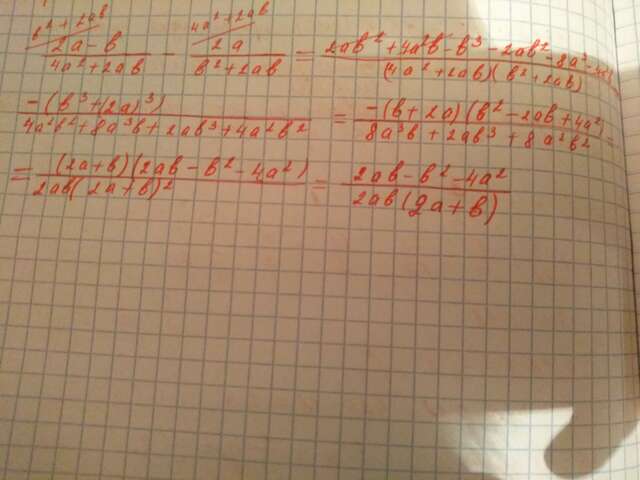 b² + 2ab 4a² + 2ab
(2a - b)/(4a² + 2ab) - 2a/(b² + 2ab) = (2ab² + 4a²b - b³ - 2ab² - 8a³)/((4a² + 2ab)(b² + 2ab))
(-(b³ + (2a)³))/(4a²b² + 8a³b + 2ab³ + 4a²b²) = (-(b + 2a)(b² - 2ab + 4a²))/(8a³b + 2ab³ + 8a²b²) =
= ((2a + b)(2ab - b² - 4a²))/(2ab(2a + b)²) = (2ab - b² - 4a²)/(2ab(2a + b))